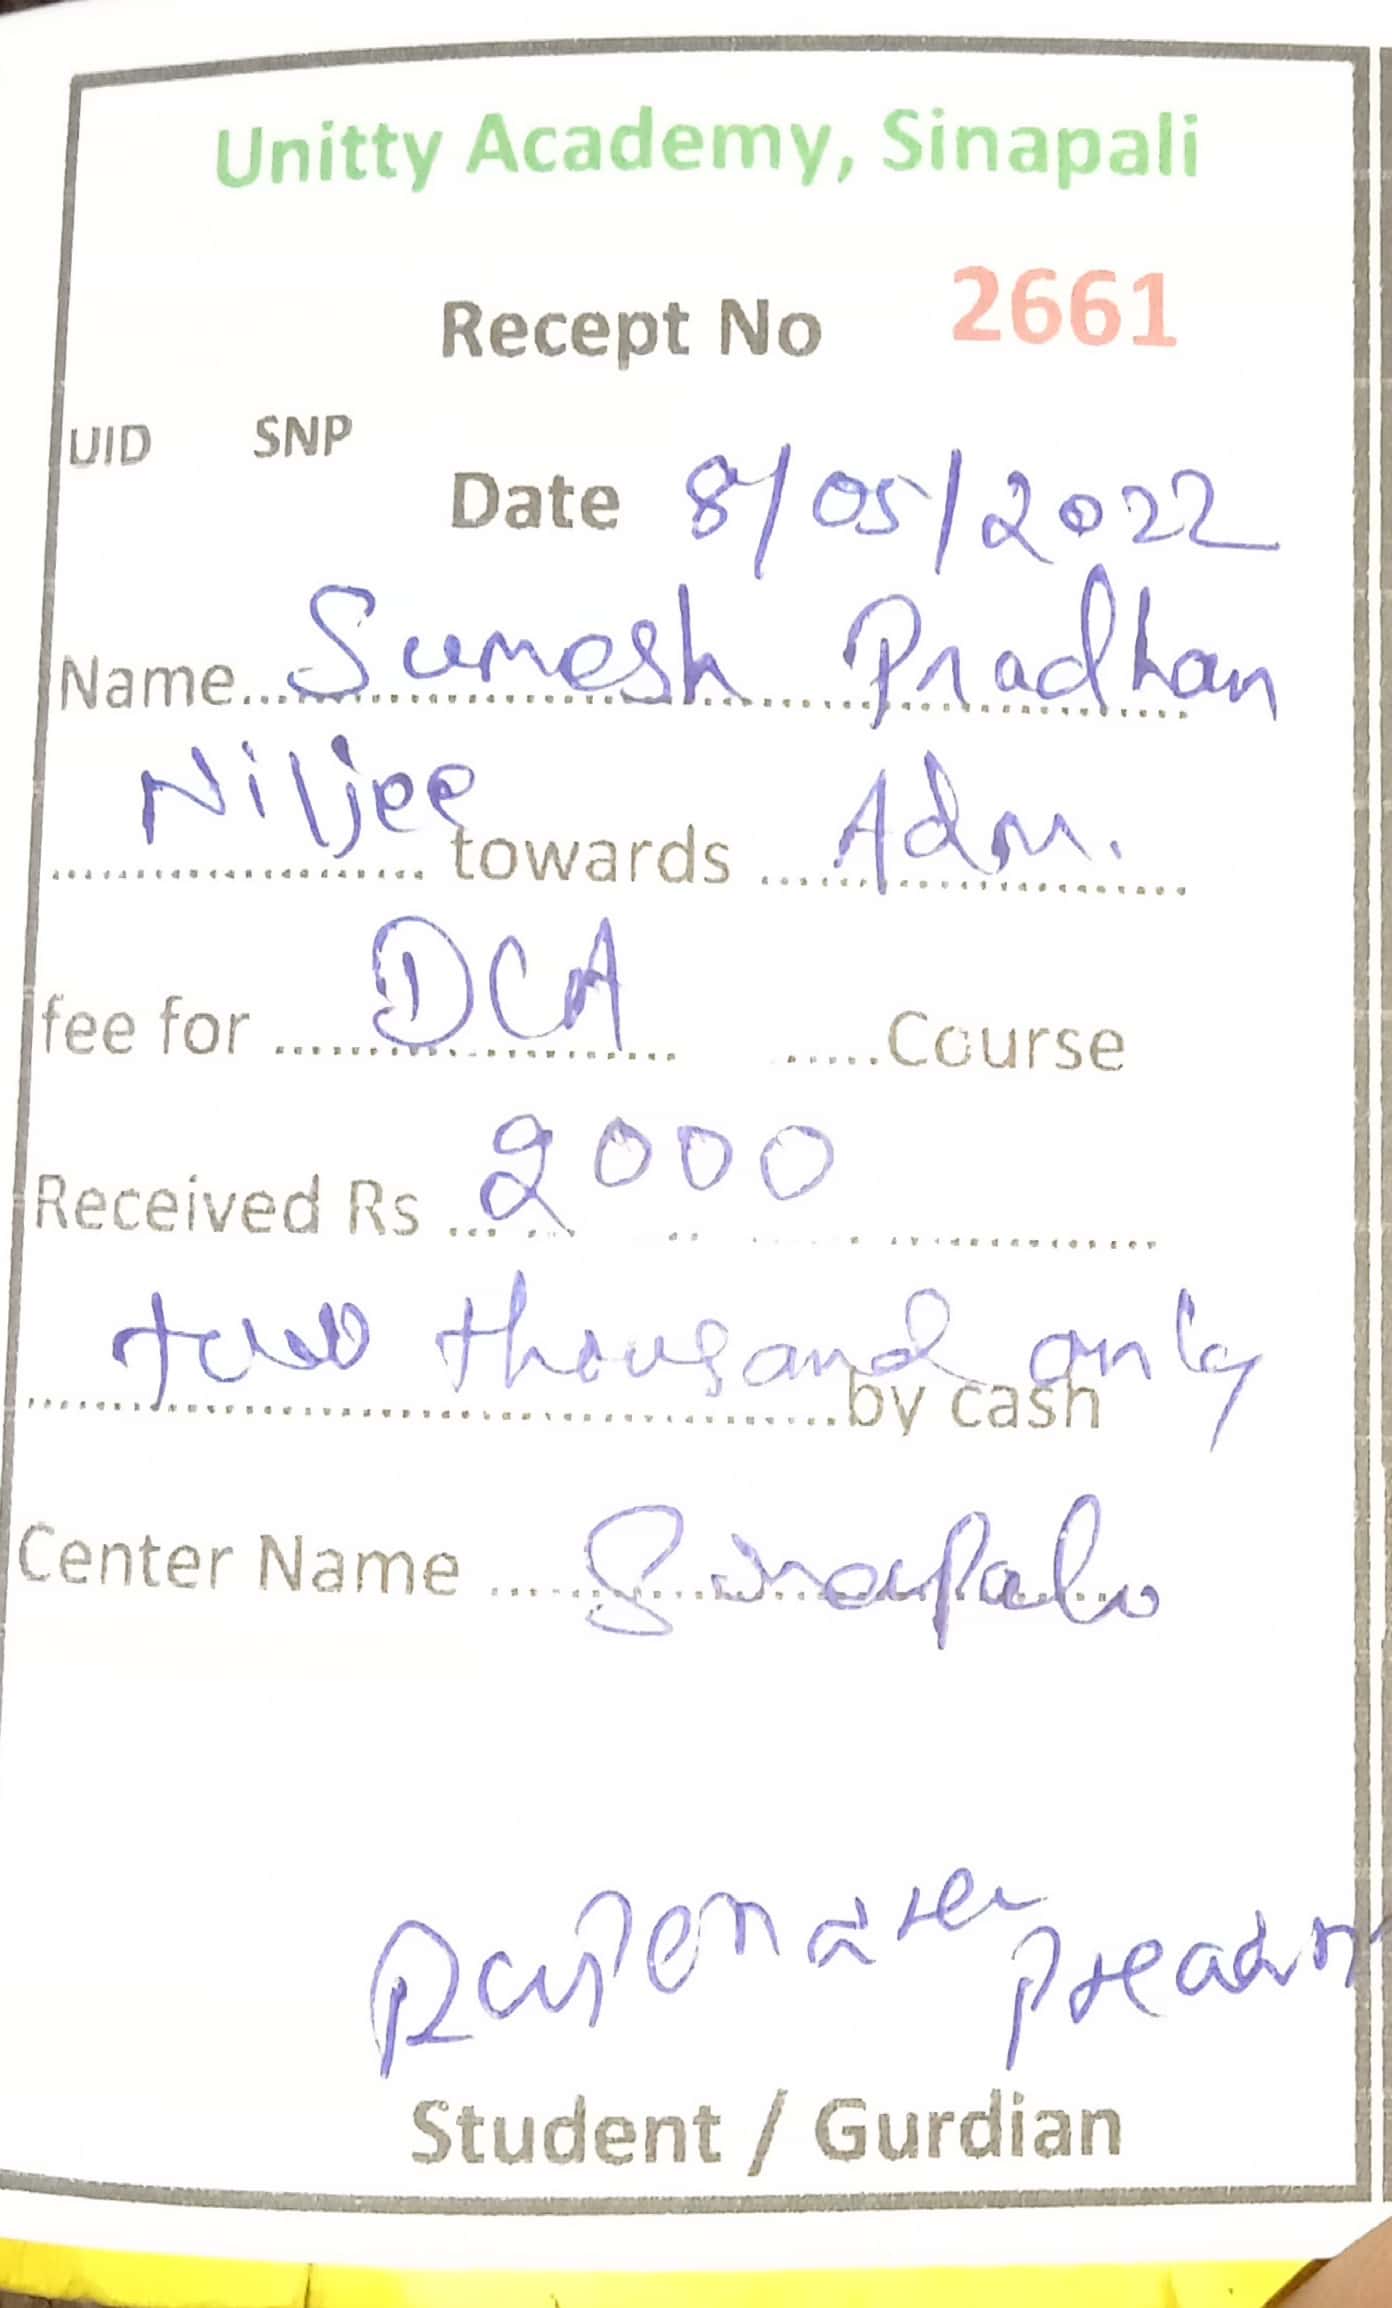 Unitty Academy, Sinapali
Recept No 2661
UID SNP
Date 8/05/2022
Name Sumesh Pradhan
Niljee towards Adm.
fee for DCA Course
Received Rs 2000
two thousand only by cash
Center Name Sinapali
Student / Gurdian